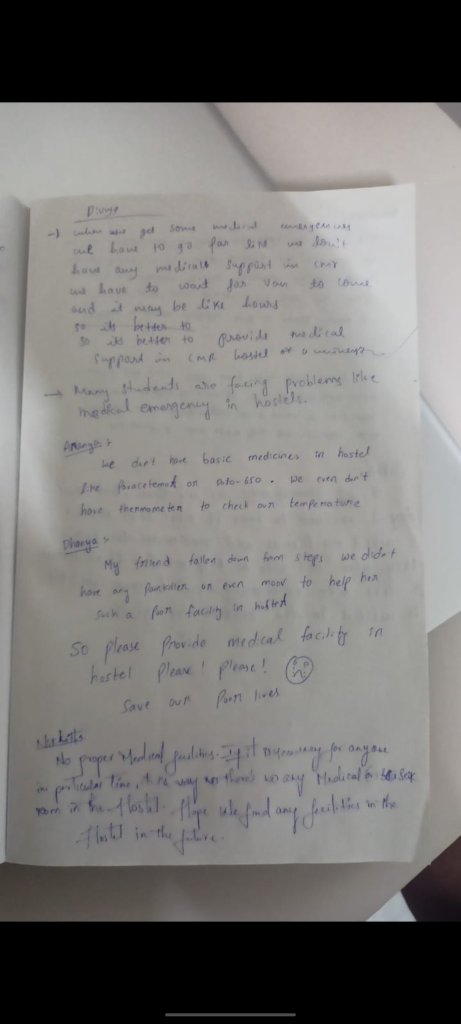 Divya
→ when we get some medical emergencies
we have to go far like we don't
have any medicals support in CMR
we have to wait for van to come
and it may be like hours
so its better to
so its better to provide medical
support in CMR hostel or
→ Many students are facing problems like
medical emergency in hostels.
Ananya :-
We don't have basic medicines in hostel
like Paracetemol or Dolo-650. We even don't
have thermometer to check our temperature
Dhanya :-
My friend fallen down from steps we didn't
have any Painkiller or even moov to help her
such a poor facility in hostel
So please Provide medical facility in
hostel Please! Please!
Save our Poor lives
No proper Medical facilities. If it for anyone
in particular time, way there's no any Medical or Sick
room in the Hostel. Hope we find any facilities in the
Hostel in the future.